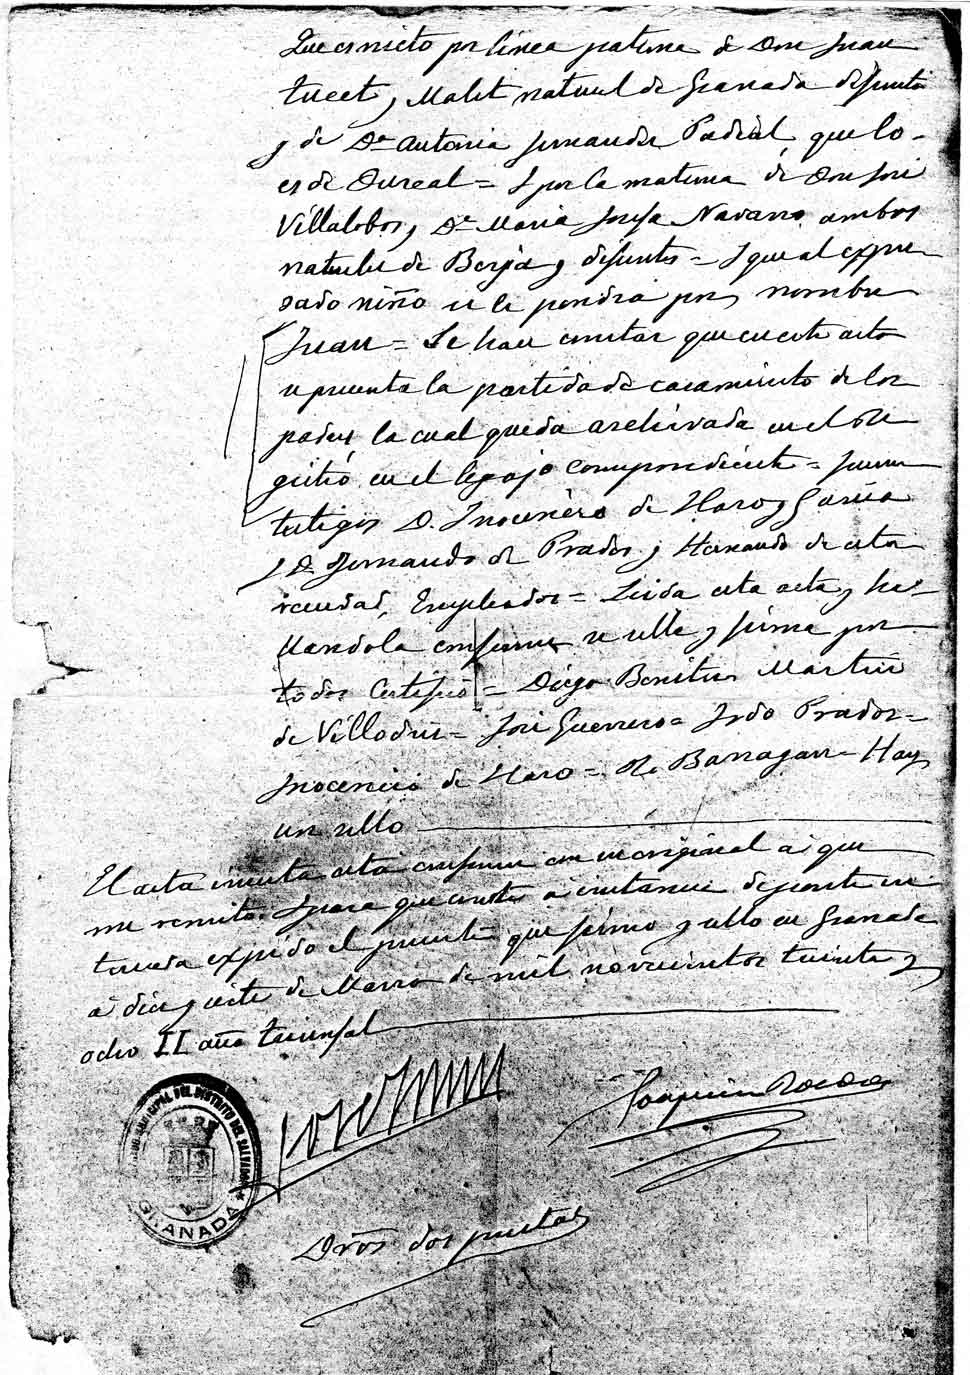 Que es nieto por línea paterna de Don Juan
y Malet natural de Granada difunto
y de Dª Antonia Fernandez Padial, que lo
es de Dureal = Y por la materna de Don José
Villalobos y Dª Maria Josefa Navarro ambos
naturales de Berja y difuntos = Y que al expre
sado niño se le pondrá por nombre
Juan = Se hace constar que en este acto
se presenta la partida de casamiento de los
padres la cual queda archivada en el Re
gistro en el legajo correspondiente = fueron
testigos D. Inocencio de Haro y Garcia
y D. Fernando de Prados y Hernando de esta
vecindad, Empleados = Leida esta acta y ha-
llandola conforme se sella y firma por
todos Certifico = Diego Benitez Martin
de Villodres = José Guerrero = Frdo Prados =
Inocencio de Haro = R. Barragan = Hay
un sello
El acta inserta está conforme con su original a que
me remito. Y para que conste a instancia de parte in
teresada expido el presente que firmo y sello en Granada
a diez y siete de Marzo de mil novecientos treinta y
ocho II año triunfal
Joaquin
MUNICIPAL DEL DISTRITO DEL SALVADOR
GRANADA
Dros dos pesetas